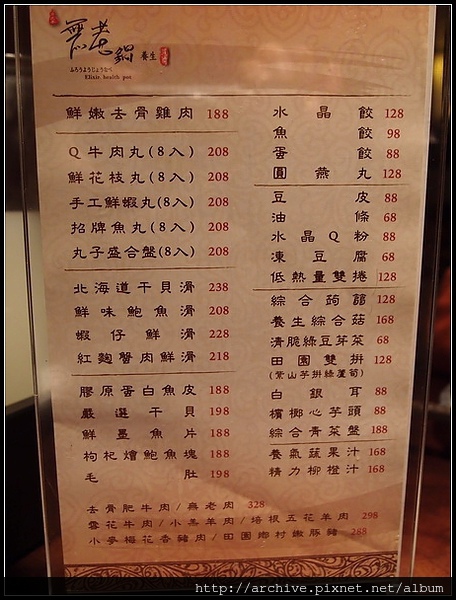 無老鍋 養生
ふろうようじょうなべ
Elixir health pot
鮮嫩去骨雞肉 188
Q牛肉丸(8入) 208
鮮花枝丸(8入) 208
手工鮮蝦丸(8入) 208
招牌魚丸(8入) 208
丸子盛合盤(8入) 208
北海道干貝滑 238
鮮味鮑魚滑 208
蝦仔鮮滑 228
紅麴蟹肉鮮滑 218
膠原蛋白魚皮 188
嚴選干貝 198
鮮墨魚片 188
枸杞燴鮑魚塊 188
毛肚 198
水晶餃 128
魚餃 98
蛋餃 88
圓燕丸 88
豆皮 88
油條 68
水晶Q粉 88
凍豆腐 68
低熱量雙捲 128
綜合蒟蒻 128
養生綜合菇 168
清脆綠豆芽菜 68
田園雙拼 128
(紫山芋拼綠蘆筍)
白銀耳 88
檳榔心芋頭 88
綜合青菜盤 188
養氣蔬果汁 168
精力柳橙汁 168
去骨肥牛肉/無老肉 328
雪花牛肉/小羔羊肉/培根五花羊肉 298
小麥梅花香豬肉/田園鄉村嫩豚豬 288
http://archive.pixnet.net/album